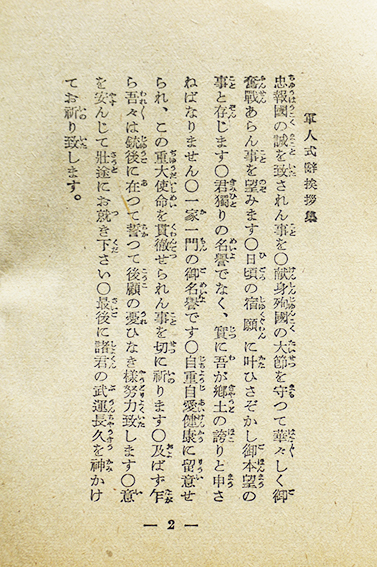 軍人式辭挨拶集
忠報國の誠を致されん事を〇献身殉國の大節を守つて華々しく御
奮戰あらん事を望みます〇日頃の宿願に叶ひさぞかし御本望の
事と存じます〇君獨りの名譽でなく、實に吾が鄕土の誇りと申さ
ねばなりません〇一家一門の御名譽です〇自重自愛健康に留意せ
られ、この重大使命を貫徹せられん事を切に祈ります〇及ばず乍
ら吾々は銃後に在つて誓つて後顧の憂ひなき樣努力致します〇意
を安んじて壯途にお就き下さい〇最後に諸君の武運長久を神かけ
てお祈り致します。
— 2 —